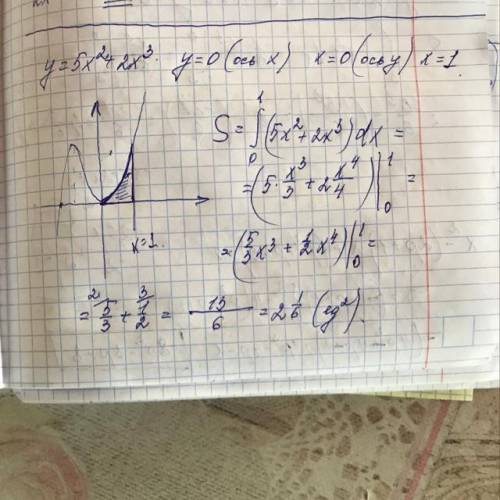 y=5x²+2x³. y=0 (ось x) x=0 (ось y) x=1.
S = ∫₀¹ (5x²+2x³)dx =
= (5·x³/3 + 2x⁴/4)|₀¹ =
x=1.
= (5/3x³ + 1/2x⁴)|₀¹ =
= ²⁄5/3 + ³⁄1/2 = 13/6 = 2 1/6 (ед²).